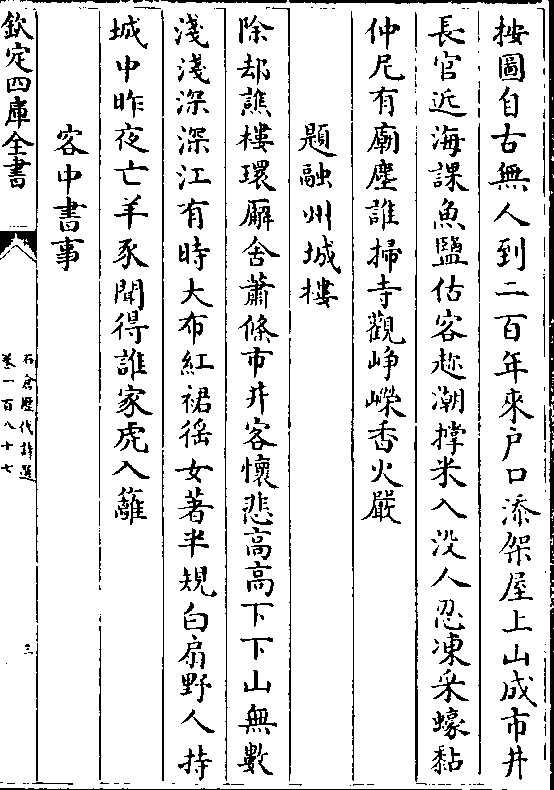 按圖自古無人到二百年來户口添架屋上山成市井
長官近海課魚鹽估客趂潮撑米入沒人忍凍采蠔黏
仲尼有廟塵誰掃寺觀崢嶸香火嚴
題融州城樓
除却譙樓環廨舍蕭條市井客懷悲高高下下山無數
淺淺深深江有時大布紅裙徭女著半規白扇野人持
城中昨夜亡羊豕聞得誰家虎入籬
客中書事
欽定四庫全書
石倉歴代詩選
卷一百八十七
三